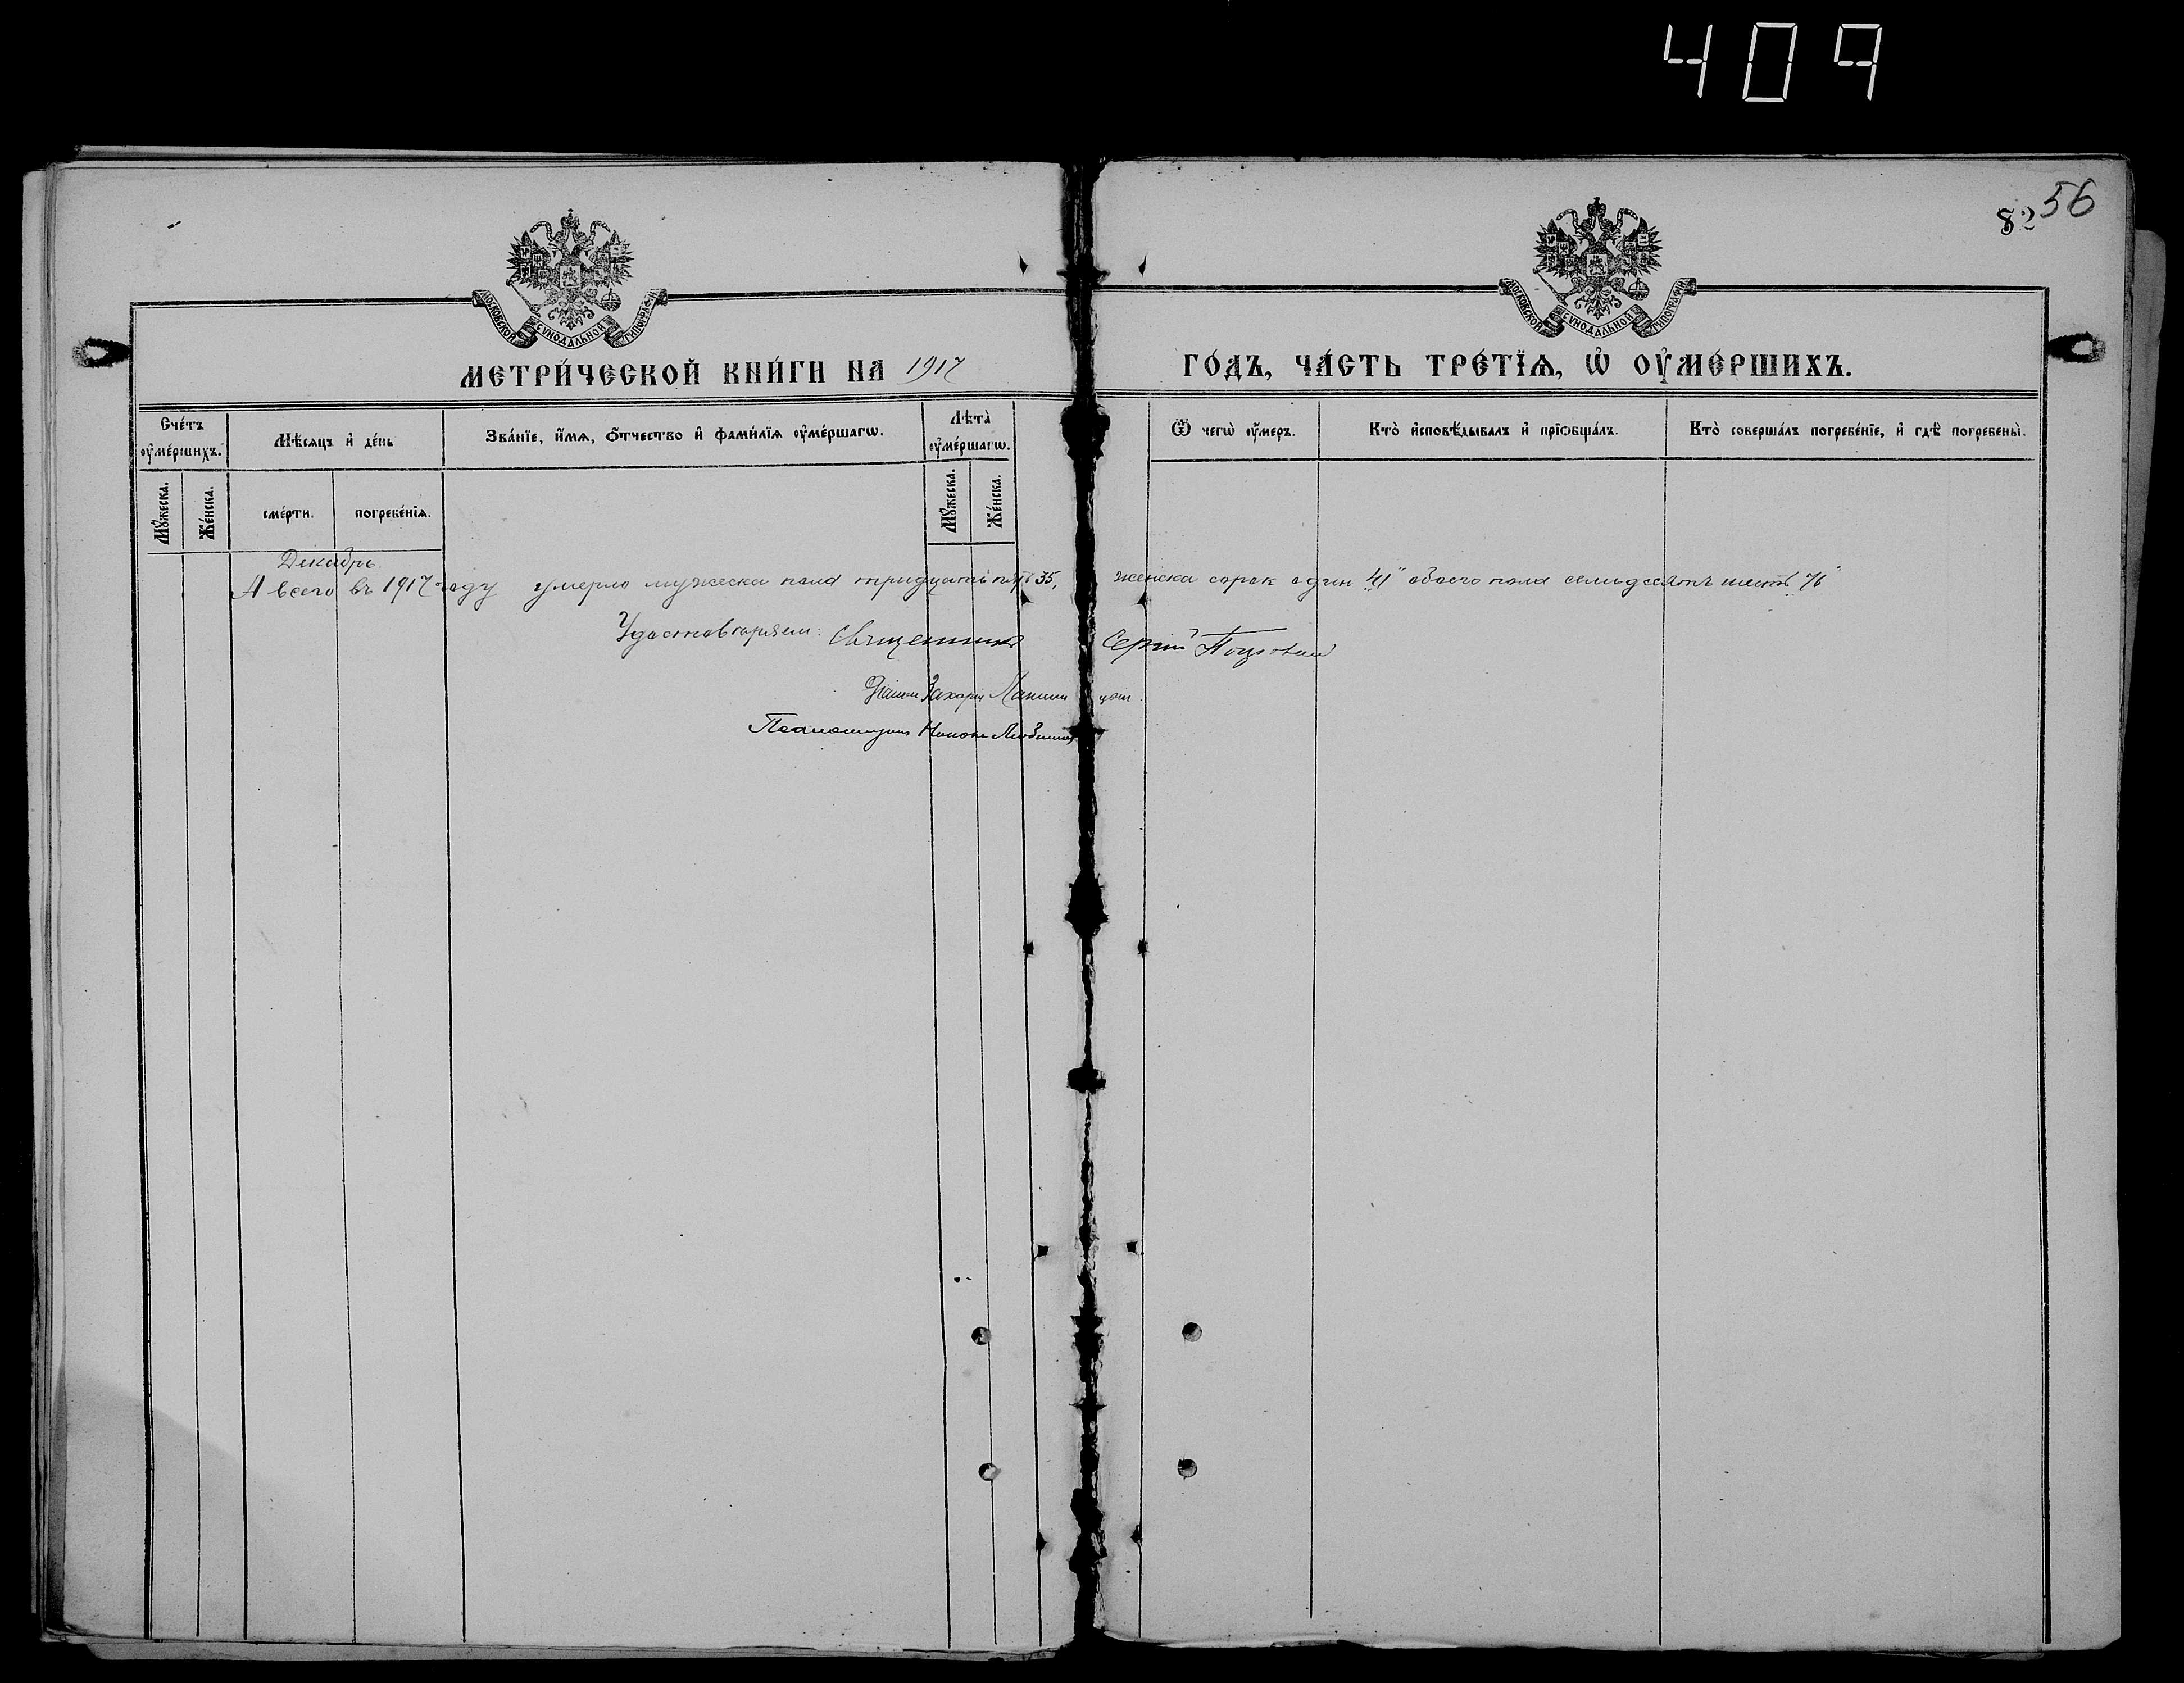 409
82 56
МОСКОВСКОЙ СѴНОДАЛЬНОЙ ТИПОГРАФІИ
МОСКОВСКОЙ СѴНОДАЛЬНОЙ ТИПОГРАФІИ
МЕТРИ́ЧЕСКОЙ КНИ́ГИ НА 1917 ГО́ДЪ, ЧА́СТЬ ТРЕ́ТІѦ, Ѡ҆ ОУ҆МЕ́РШИХЪ.
Сче́тъ оу҆ме́ршихъ.
Мѣ́сяцъ и҆ де́нь
Зва́нїе, и҆́мѧ, ѻ҆́тчество и҆ фами́лїѧ оу҆ме́ршагѡ.
Лѣ̑та̀ оу҆ме́ршагѡ.
Ѿ чегѡ̀ оу҆́меръ.
Кто̀ и҆сповѣ́дывалъ и҆ прїѡбща́лъ.
Кто̀ соверша́лъ погребе́нїе, и҆ гдѣ̀ погребены̀.
Мꙋ́жеска.
Же́нска.
сме́рти.
погребе́нїѧ.
Мꙋ́жеска.
Же́нска.
Декабрь.
А всего въ 1917 году умерло мужеска пола тридцать пять 35, женска сорок один "41" обоего пола семьдесятъ шесть "76"
Удостоверяем: Священникъ Сергій
Діакон Захарія
Псаломщик